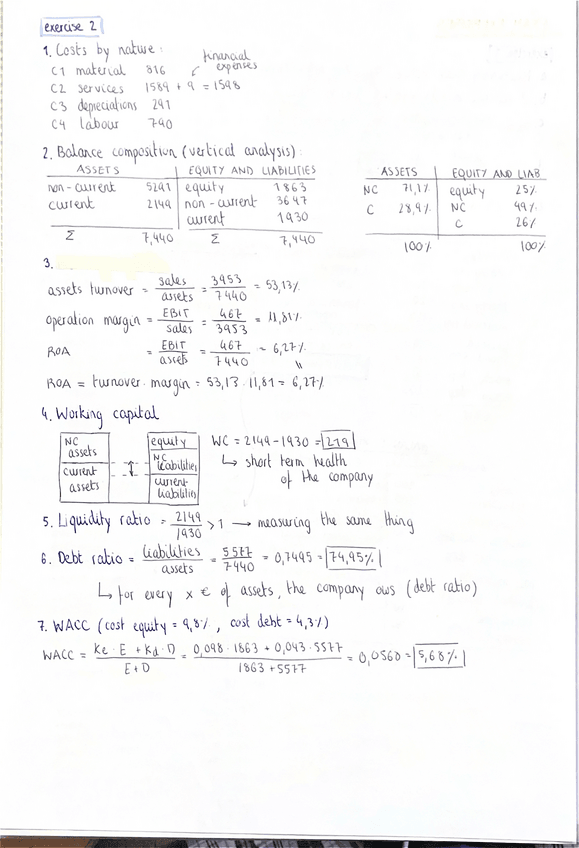 exercise 2
1. Costs by nature:
financial expenses
C1 material 816
C2 services 1589 + 9 = 1598
C3 depreciations 291
C4 labour 790
2. Balance composition (vertical analysis):
ASSETS EQUITY AND LIABILITIES
non-current 5291 equity 1863
current 2149 non-current 3647
current 1930
Σ 7,440 Σ 7,440
ASSETS EQUITY AND LIAB
NC 71,1% equity 25%
C 28,9% NC 49%
C 26%
100% 100%
3.
assets turnover = sales / assets = 3953 / 7440 = 53,13%
operation margin = EBIT / sales = 467 / 3953 = 11,81%
ROA = EBIT / assets = 467 / 7440 = 6,27%
ROA = turnover · margin = 53,13 · 11,81 = 6,27%
4. Working capital
NC assets equity
NC liabilities
current assets current liabilities
WC = 2149 - 1930 = 219
↳ short term health
of the company
5. Liquidity ratio = 2149 / 1930 > 1 → measuring the same thing
6. Debt ratio = liabilities / assets = 5577 / 7440 = 0,7495 = 74,95%
↳ for every x € of assets, the company ows (debt ratio)
7. WACC (cost equity = 9,8%, cost debt = 4,3%)
WACC = Ke · E + Kd · D / E + D = 0,098 · 1863 + 0,043 · 5577 / 1863 + 5577 = 0,0568 = 5,68%